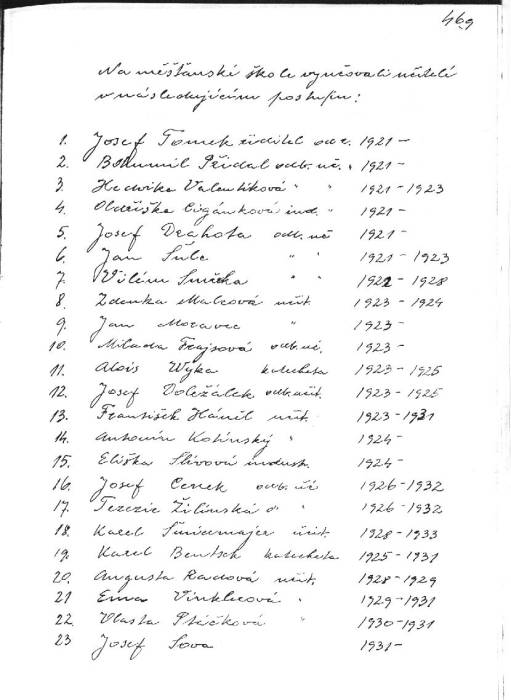 469
Na měšťanské škole vyučovali učitelé
v následujícím postupu:
1. Josef Tomek ředitel od r. 1921 –
2. Bohumil Přidal odb. uč. " 1921 –
3. Hedvika Valentíková " " 1921 – 1923
4. Oldřiška Cigánková ind. " 1921 –
5. Josef Drahota odb. uč 1921 –
6. Jan Šulc " " 1921 – 1923
7. Vilém Smička " " 1922 – 1928
8. Zdenka Malcová učit. 1923 – 1924
9. Jan Moravec " 1923 –
10. Milada Frajsová odb. uč. 1923 –
11. Alois Wýka katecheta 1923 – 1925
12. Josef Doležálek odb. učit. 1923 – 1925
13. František Háněl učit. 1923 – 1931
14. Antonín Kotínský " 1924 –
15. Eliška Slívová indust. 1924 –
16. Josef Cenek odb. uč 1926 – 1932
17. Terezie Žilínská " 1926 – 1932
18. Karel učit. 1928 – 1933
19. Karel Bentsch katecheta 1925 – 1931
20. Augusta Radová učit. 1928 – 1929
21 Ema Vinklerová " 1929 – 1931
22. Vlasta Ptáčková " 1930 – 1931
23 Josef Sova 1931 –